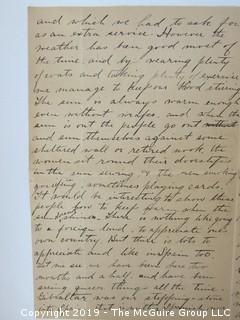 and which we had to ask for
as an extra service. However the
weather has been good most of
the time, and by wearing plenty
of coats and taking plenty of exercise
we manage to keep our blood stirring
The sun is always warm enough
even without wraps, and when the
sun is out the people go out
and sun themselves against some
sheltered wall or retired nook, the
women sit round their doorsteps
in the sun sewing, & the men smoking
sometimes playing cards.
It would be interesting to show these
people how to keep warm when the
sun There is nothing like going
to a foreign land, to appreciate one's
own country. But there is lots to
appreciate and like in Spain too.
we have been here two
months and a half, and have been
seeing queer things all the time.
Gibraltar was our stopping-
Copyright 2019 - The Internet